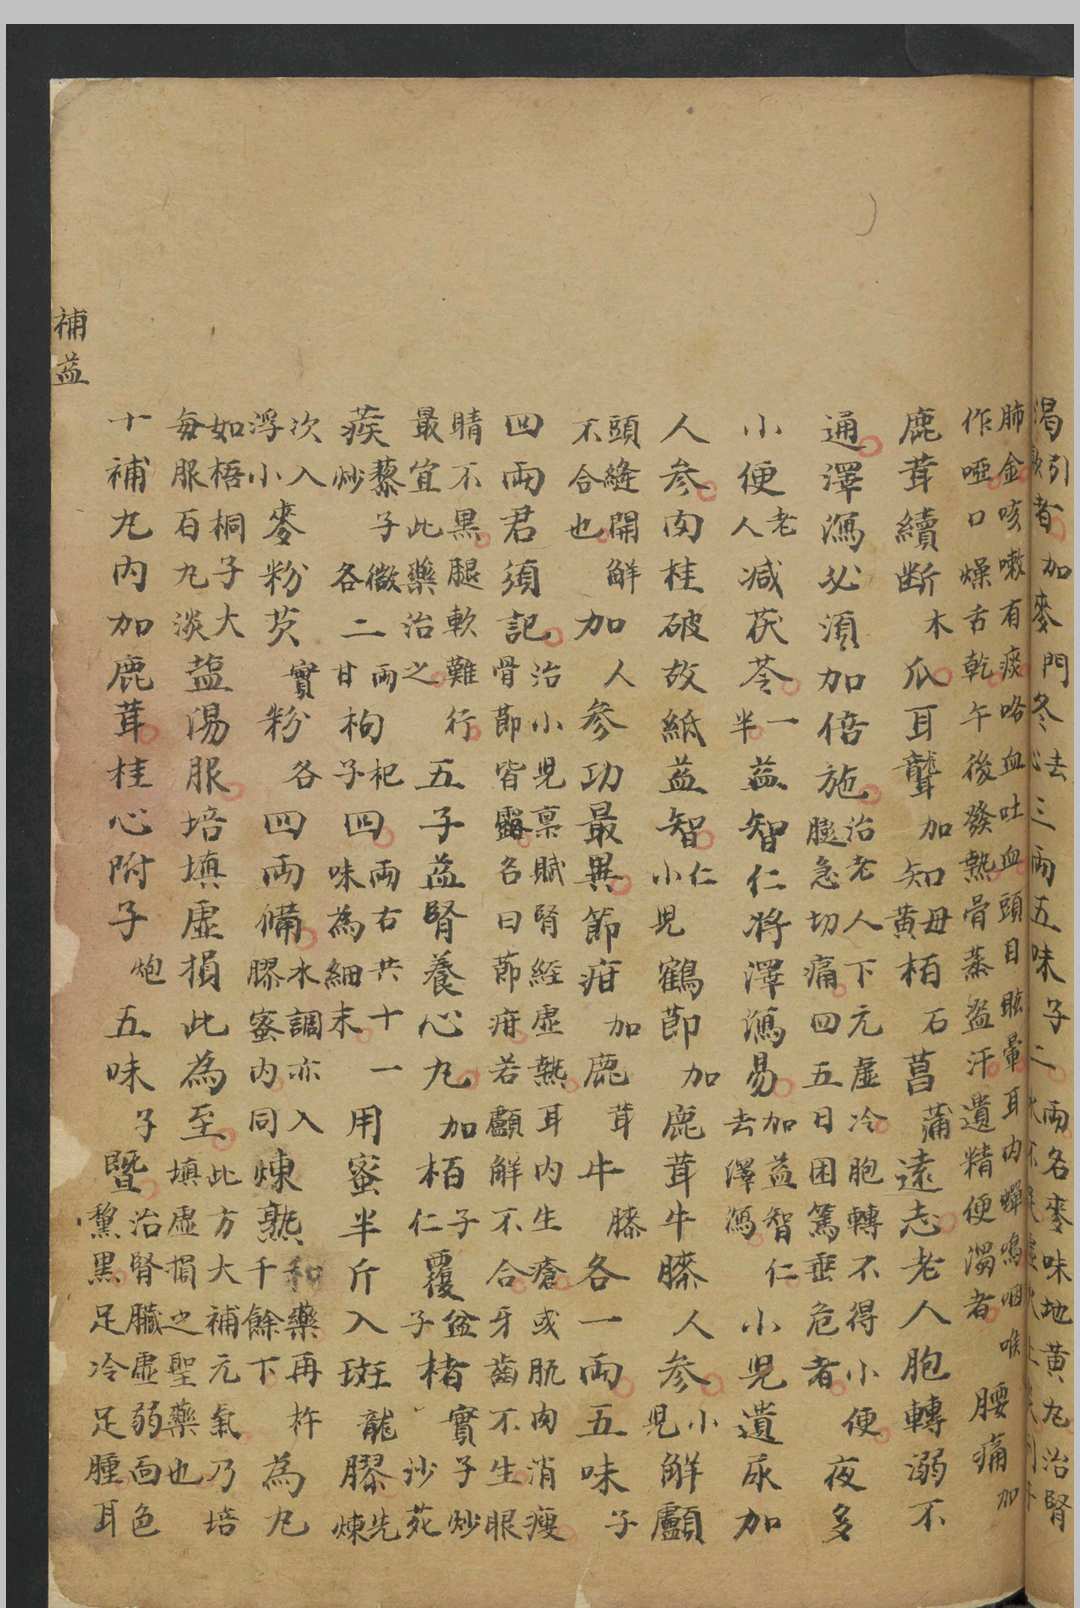 渴引飲者加麥門冬去心三兩五味子二兩名麥味地黃丸治腎
肺金咳嗽有痰咯血吐血頭目眩暈耳內蟬鳴咽喉
作啞口燥舌乾午後發熱骨蒸盜汗遺精便濁者腰痛加
鹿茸續斷木瓜耳聾加知母黃栢石菖蒲遠志老人胞轉溺不
通澤瀉必須加倍施治老人下元虛冷胞轉不得小便膨急切痛四五日困篤垂危者夜多
小便老人減茯苓一半益智仁將澤瀉易加益智仁去澤瀉小兒遺尿加
人參肉桂破故紙益智仁小兒鶴節加鹿茸牛膝人參小兒解顱
頭縫開解不合也加人參功最異節疳加鹿茸牛膝各一兩五味子
四兩君須記治小兒稟賦腎經虛熱耳內生瘡或肌肉消瘦骨節皆露名曰節疳若顱解不合牙齒不生眼
睛不黑腿軟難行最宜此藥治之五子益腎養心丸加栢子仁覆盆子楮實子炒沙苑
蒺藜子微炒各二兩甘枸杞子四兩右共十一味為細末用蜜半斤入斑龍膠先煉
次入浮小麥粉芡實粉各四兩備水調亦入膠蜜內同煉熟和藥再杵千餘下為丸
如梧桐子大每服百丸淡鹽湯服培填虛損此為至此方大補元氣乃培填虛損之聖藥也
十補丸內加鹿茸桂心附子炮五味子暨治腎臟虛弱面色黧黑足冷足腫耳
補益